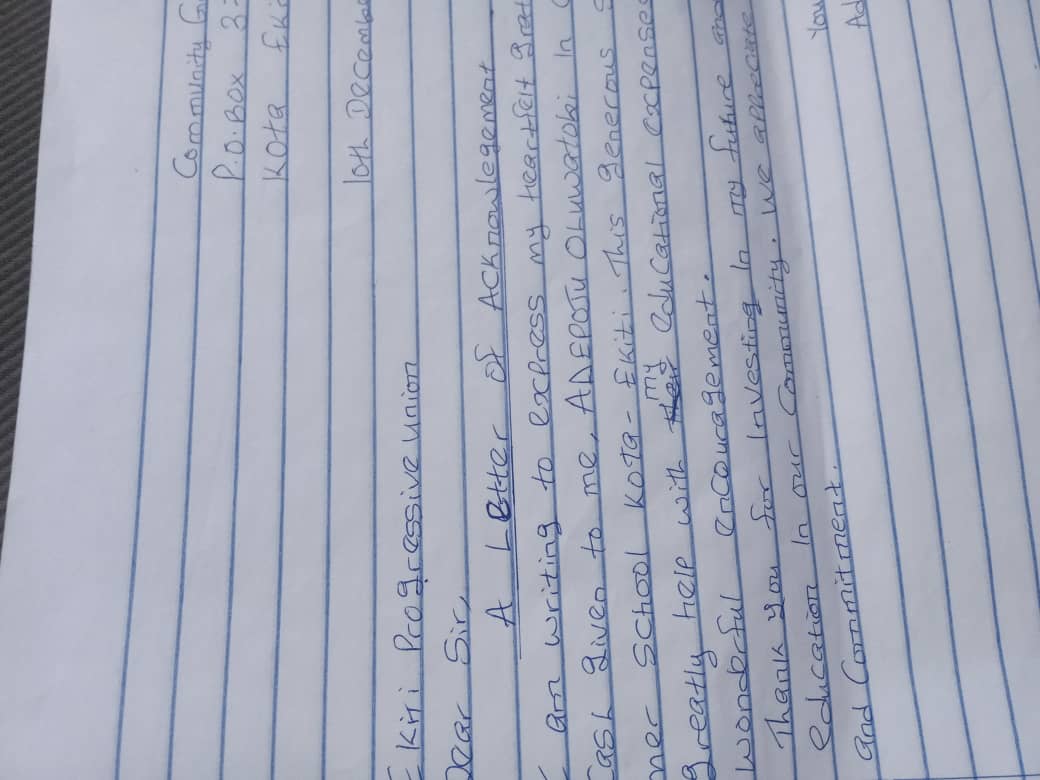 Community
P.O.BOX 3
KOTA EKi
10th Decembe
Kiti Progressive union
Dear Sir,
A Letter of Acknowlegement
I am writing to express my heartfelt grat
Cash given to me, ADEPOJU OLUWATOBI In
School KOTA-Ekiti. This generous
greatly help with my educational expenses
Wonderful encouragement.
Thank you for Investing In my future and
education In our Community. We appreciate
and Commitment.
You
Ad